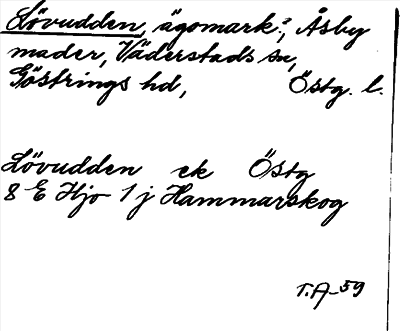 Lövudden, ägomark?, Åsby
mader, Väderstads sn,
Göstrings hd, Östg. l.
Lövudden ek Östg
8 E Hjo 1 j Hammarskog
T.A-59